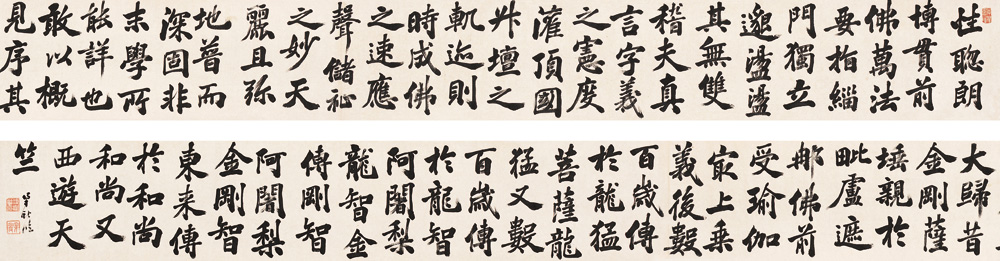 性聰朗
博貫前
佛萬法
要指緇
門獨立
邈盪盪
其無雙
稽夫真
言字義
之憲度
灌頂國
升壇之
軌迹則
時成佛
之速應
聲儲祉
之妙天
麗且弥
地普而
深固非
末學所
能詳也
敢以概
見序其
大歸昔
金剛薩
埵親於
毗盧遮
那佛前
受瑜伽
冣上乘
義後數
百歲傳
於龍猛
菩薩龍
猛又數
百歲傳
於龍智
阿闍梨
龍智金
傳剛智
阿闍梨
金剛智
東来傳
於和尚
和尚又
西遊天
竺